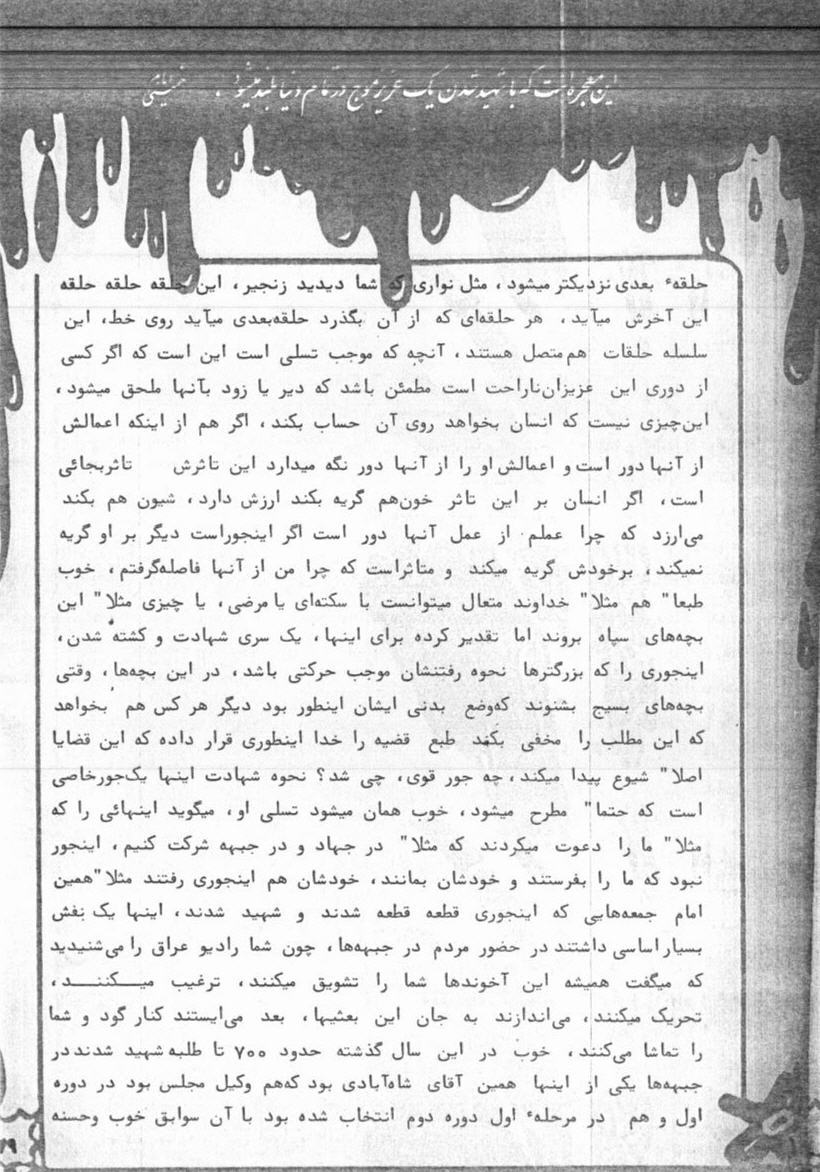 این معجزه است که با شهید شدن یک عزیز موج در تمام دنیا بلند میشود . امام خمینی
حلقهٔ بعدی نزدیکتر میشود ، مثل نواری که شما دیدید زنجیر ، این حلقه حلقه حلقه
این آخرش میآید ، هر حلقه‌ای که از آن بگذرد حلقه‌بعدی میآید روی خط ، این
سلسله حلقات هم‌متصل هستند ، آنچه که موجب تسلی است این است که اگر کسی
از دوری این عزیزان‌ناراحت است مطمئن باشد که دیر یا زود بآنها ملحق میشود ،
این‌چیزی نیست که انسان بخواهد روی آن حساب بکند ، اگر هم از اینکه اعمالش
از آنها دور است و اعمالش او را از آنها دور نگه میدارد این تاثرش تاثربجائی
است ، اگر انسان بر این تاثر خون‌هم گریه بکند ارزش دارد ، شیون هم بکند
می‌ارزد که چرا عملم از عمل آنها دور است اگر اینجوراست دیگر بر او گریه
نمیکند ، برخودش گریه میکند و متاثراست که چرا من از آنها فاصله‌گرفتم ، خوب
طبعا" هم مثلا" خداوند متعال میتوانست با سکته‌ای یا مرضی ، یا چیزی مثلا" این
بچه‌های سپاه بروند اما تقدیر کرده برای اینها ، یک سری شهادت و کشته شدن ،
اینجوری را که بزرگترها نحوه رفتنشان موجب حرکتی باشد ، در این بچه‌ها ، وقتی
بچه‌های بسیج بشنوند که‌وضع بدنی ایشان اینطور بود دیگر هر کس هم بخواهد
که این مطلب را مخفی بکند طبع قضیه را خدا اینطوری قرار داده که این قضایا
اصلا" شیوع پیدا میکند ، چه جور قوی ، چی شد ؟ نحوه شهادت اینها یک‌جورخاصی
است که حتما" مطرح میشود ، خوب همان میشود تسلی او ، میگوید اینهائی را که
مثلا" ما را دعوت میکردند که مثلا" در جهاد و در جبهه شرکت کنیم ، اینجور
نبود که ما را بفرستند و خودشان بمانند ، خودشان هم اینجوری رفتند مثلا"همین
امام جمعه‌هایی که اینجوری قطعه قطعه شدند و شهید شدند ، اینها یک نقش
بسیاراساسی داشتند در حضور مردم در جبهه‌ها ، چون شما رادیو عراق را می‌شنیدید
که میگفت همیشه این آخوندها شما را تشویق میکنند ، ترغیب میـکننـد ،
تحریک میکنند ، می‌اندازند به جان این بعثیها ، بعد می‌ایستند کنار گود و شما
را تماشا می‌کنند ، خوب در این سال گذشته حدود ۷۰۰ تا طلبه‌شهید شدنددر
جبهه‌ها یکی از اینها همین آقای شاه‌آبادی بود که‌هم وکیل مجلس بود در دوره
اول و هم در مرحلهٔ اول دوره دوم انتخاب شده بود با آن سوابق خوب وحسنه